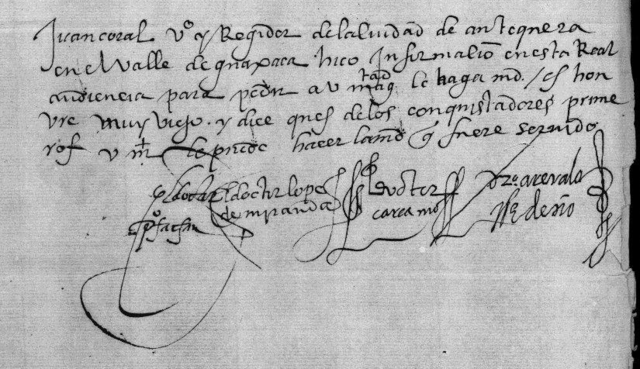 Juan coral vº y Regidor de la ciudad de antequera
en el valle de guaxaca hizo Informaçion en esta Real
audiencia para pedir a v magtad le haga md / es hon
vre muy viejo y dize ques de los conquistadores prime
ros v mt le puede hazer la md q fuere seruido
el doctor
pº farfan
el doctor lope
de miranda
el doctor
carcamo